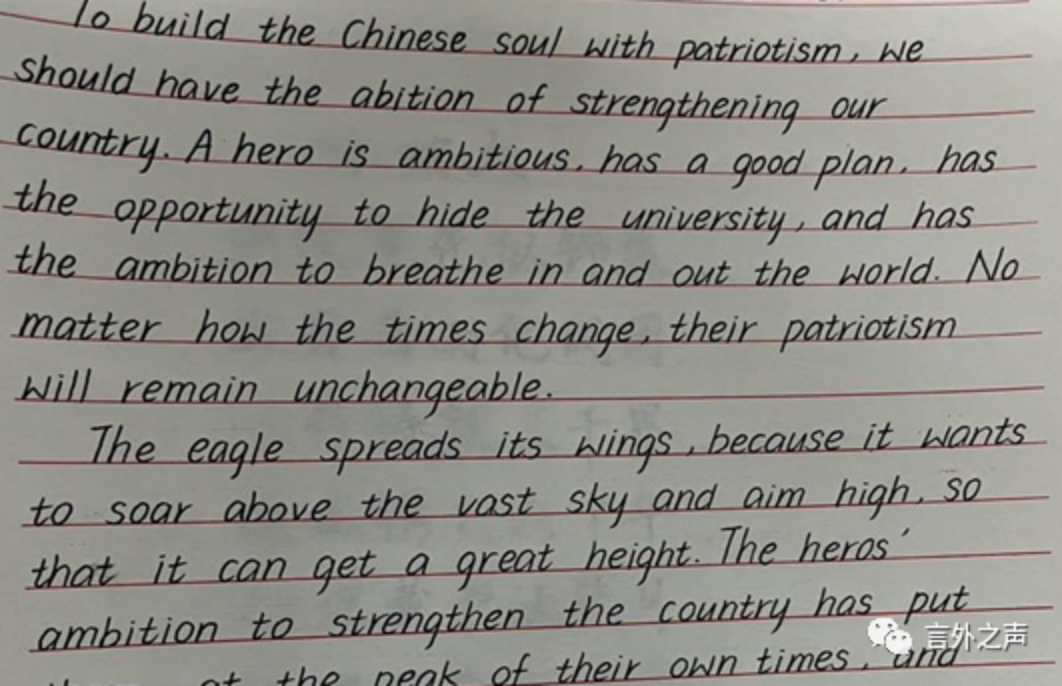 To build the Chinese soul with patriotism, we
should have the abition of strengthening our
country. A hero is ambitious, has a good plan, has
the opportunity to hide the university, and has
the ambition to breathe in and out the world. No
matter how the times change, their patriotism
will remain unchangeable.
The eagle spreads its wings, because it wants
to soar above the vast sky and aim high, so
that it can get a great height. The heros'
ambition to strengthen the country has put
at the peak of their own times, and
言外之声